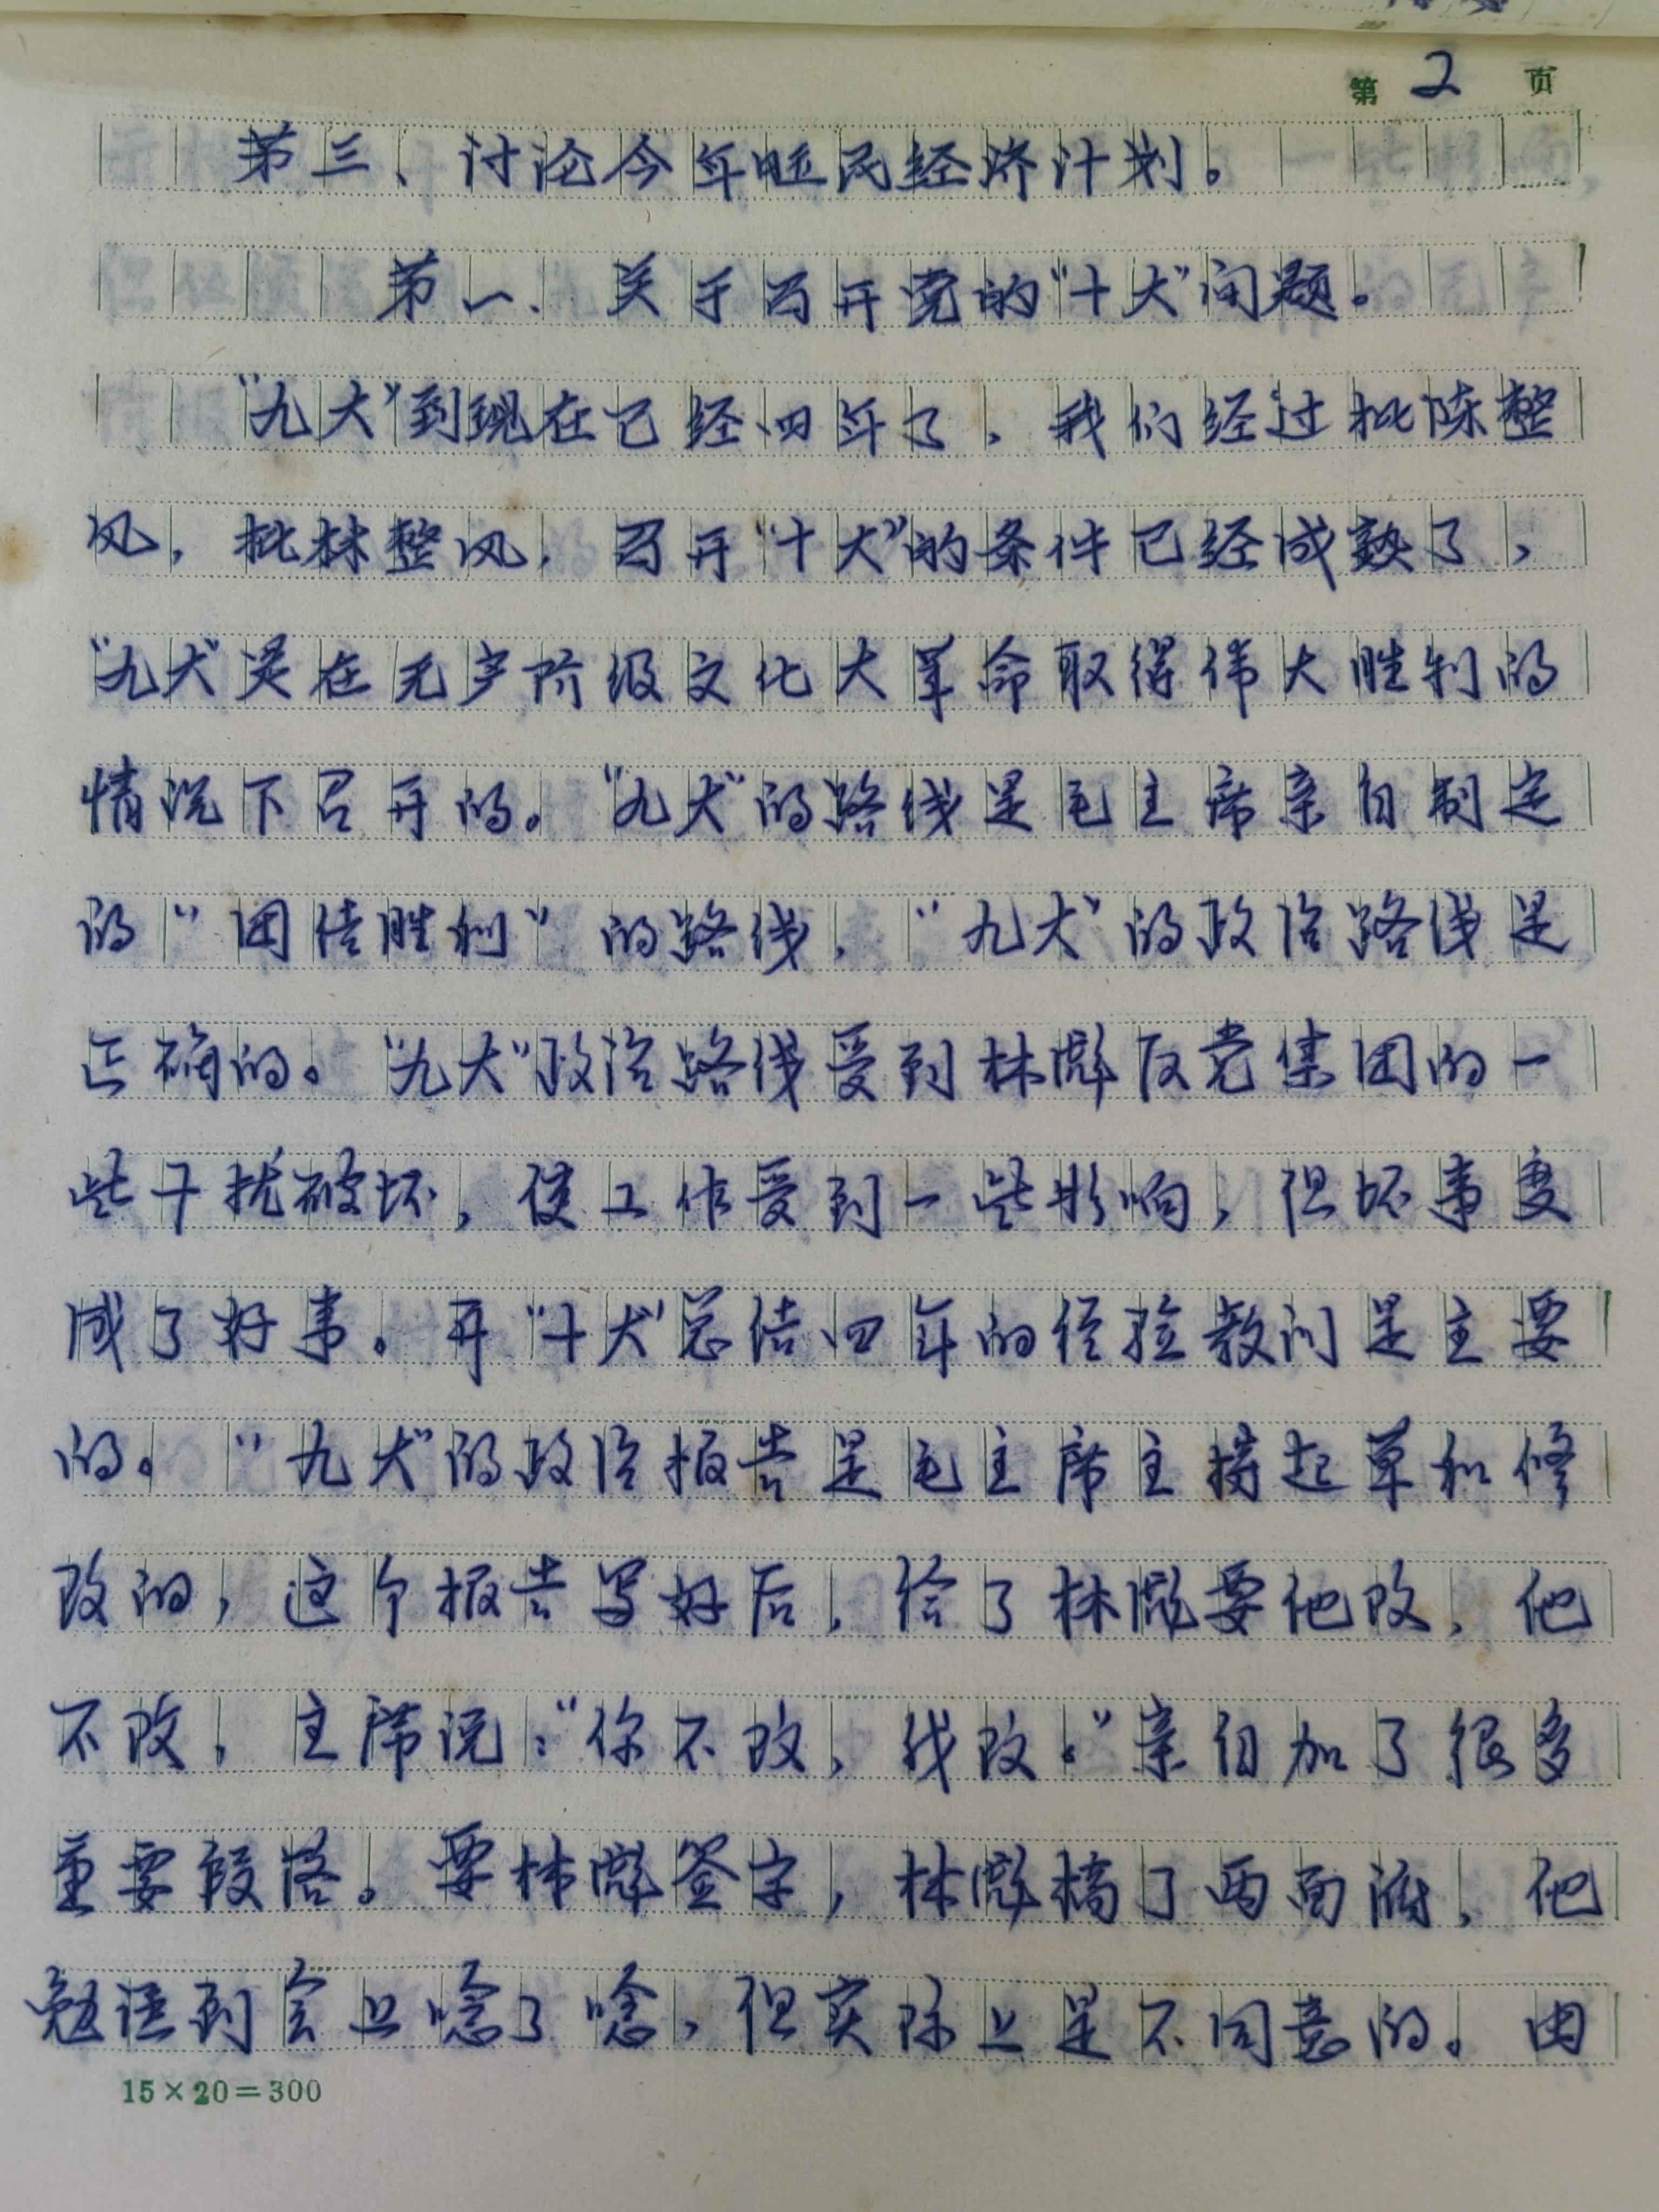 第 2 页
第三、讨论今年国民经济计划。
第一、关于召开党的“十大”问题。
“九大”到现在已经四年了，我们经过批陈整
风，批林整风，召开“十大”的条件已经成熟了，
“九大”是在无产阶级文化大革命取得伟大胜利的
情况下召开的。“九大”的路线是毛主席亲自制定
的“团结胜利”的路线，“九大”的政治路线是
正确的。“九大”政治路线受到林彪反党集团的一
些干扰破坏，使工作受到一些影响，但坏事变
成了好事。开“十大”总结四年的经验教训是主要
的。“九大”的政治报告是毛主席主持起草和修
改的，这个报告写好后，给了林彪要他改，他
不改，主席说：“你不改，我改。”亲自加了很多
重要段落。要林彪签字，林彪搞了两面派，他
勉强到会上唸了唸，但实际上是不同意的。由
15×20=300